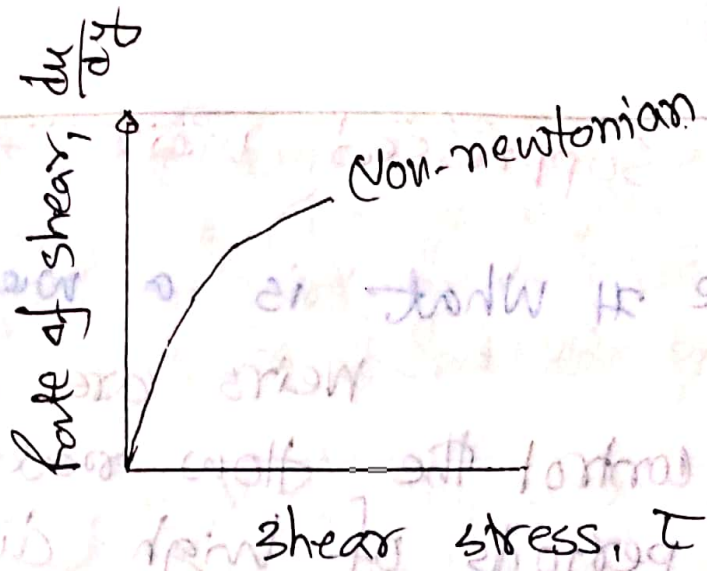 Rate of shear, du/dy
Non-newtonian
shear stress, τ